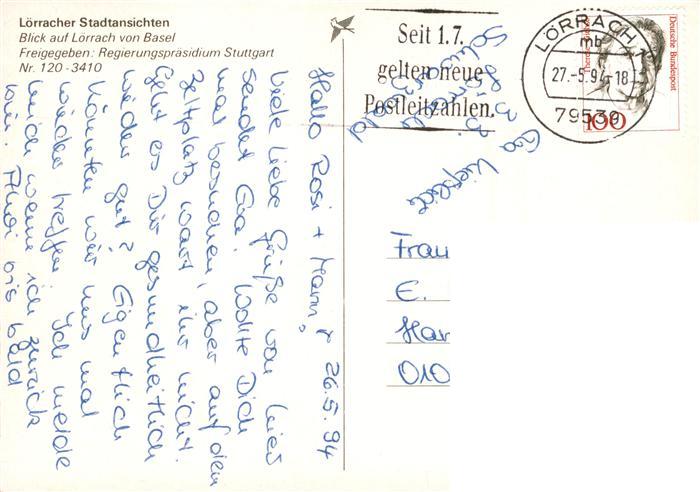 Lörracher Stadtansichten
Blick auf Lörrach von Basel
Freigegeben: Regierungspräsidium Stuttgart
Nr. 120-3410
Hallo Rosi + Mann, 26.5.94
viele liebe Grüße von hier
sendet Eva. Wollte Dich
mal besuchen, aber auf dem
Zeltplatz wart ihr nicht.
Geht es Dir gesundheitlich
wieder gut? Eigentlich
könnten wir uns mal
wieder treffen. Ich melde
mich wenn ich zurück
bin. Tschüß bis bald
Eva
Seit 1.7.
gelten neue
Postleitzahlen.
LÖRRACH 1
mb
27.-5.94-18
79539
Deutsche Bundespost
100
Frau
E.
Har
010